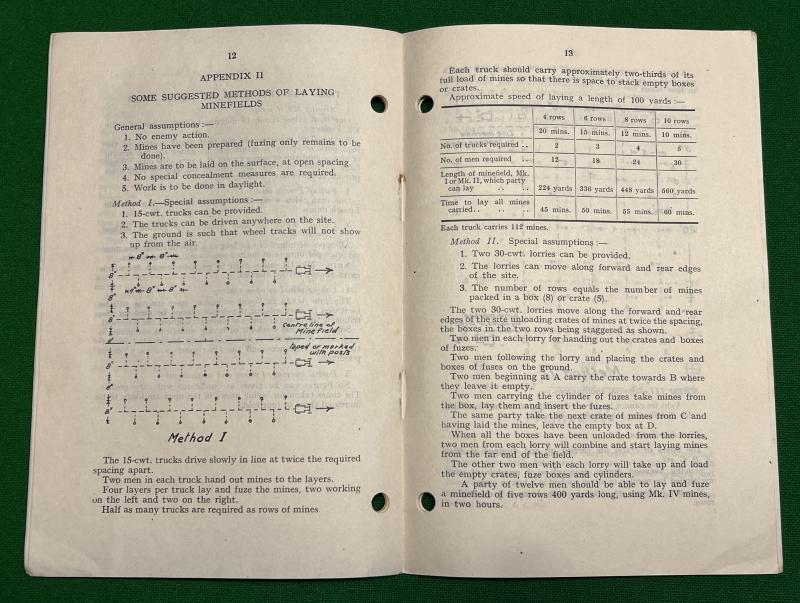 12
APPENDIX II
SOME SUGGESTED METHODS OF LAYING
MINEFIELDS
General assumptions :—
1. No enemy action.
2. Mines have been prepared (fuzing only remains to be
done).
3. Mines are to be laid on the surface, at open spacing.
4. No special concealment measures are required.
5. Work is to be done in daylight.
Method I.—Special assumptions :—
1. 15-cwt. trucks can be provided.
2. The trucks can be driven anywhere on the site.
3. The ground is such that wheel tracks will not show
up from the air
Centre line of
Minefield
taped or marked
with posts
Method I
The 15-cwt. trucks drive slowly in line at twice the required
spacing apart.
Two men in each truck hand out mines to the layers.
Four layers per truck lay and fuze the mines, two working
on the left and two on the right.
Half as many trucks are required as rows of mines
13
Each truck should carry approximately two-thirds of its
full load of mines so that there is space to stack empty boxes
or crates.
Approximate speed of laying a length of 100 yards :—
4 rows 6 rows 8 rows 10 rows
20 mins. 15 mins. 12 mins. 10 mins.
No. of trucks required .. 2 3 4 5
No. of men required .. 12 18 24 30
Length of minefield, Mk.
I or Mk. II, which party
can lay .. .. 224 yards 336 yards 448 yards 560 yards
Time to lay all mines
carried.. .. .. 45 mins. 50 mins. 55 mins. 60 mins.
Each truck carries 112 mines.
Method II. Special assumptions :—
1. Two 30-cwt. lorries can be provided.
2. The lorries can move along forward and rear edges
of the site.
3. The number of rows equals the number of mines
packed in a box (8) or crate (5).
The two 30-cwt. lorries move along the forward and rear
edges of the site unloading crates of mines at twice the spacing,
the boxes in the two rows being staggered as shown.
Two men in each lorry for handing out the crates and boxes
of fuzes.
Two men following the lorry and placing the crates and
boxes of fuses on the ground.
Two men beginning at A carry the crate towards B where
they leave it empty.
Two men carrying the cylinder of fuzes take mines from
the box, lay them and insert the fuzes.
The same party take the next crate of mines from C and
having laid the mines, leave the empty box at D.
When all the boxes have been unloaded from the lorries,
two men from each lorry will combine and start laying mines
from the far end of the field.
The other two men with each lorry will take up and load
the empty crates, fuze boxes and cylinders.
A party of twelve men should be able to lay and fuze
a minefield of five rows 400 yards long, using Mk. IV mines,
in two hours.